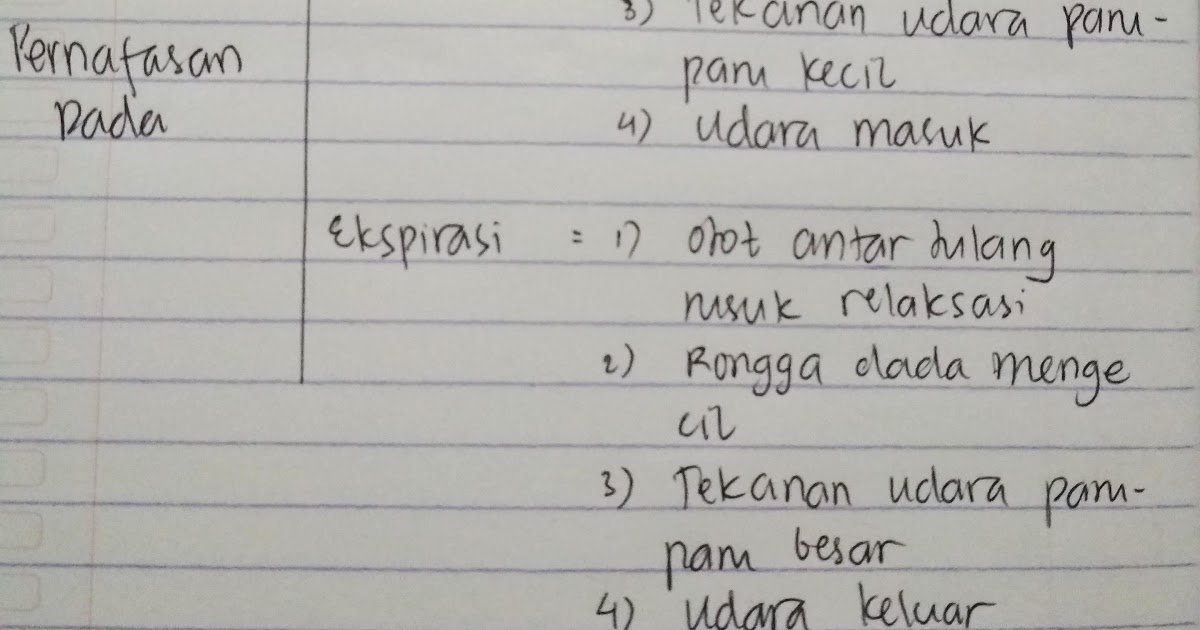 3) Tekanan udara paru-
paru kecil
Pernafasan
Dada
4) Udara masuk
Ekspirasi = 1) Otot antar tulang
rusuk relaksasi
2) Rongga dada menge
cil
3) Tekanan udara paru-
paru besar
4) Udara keluar